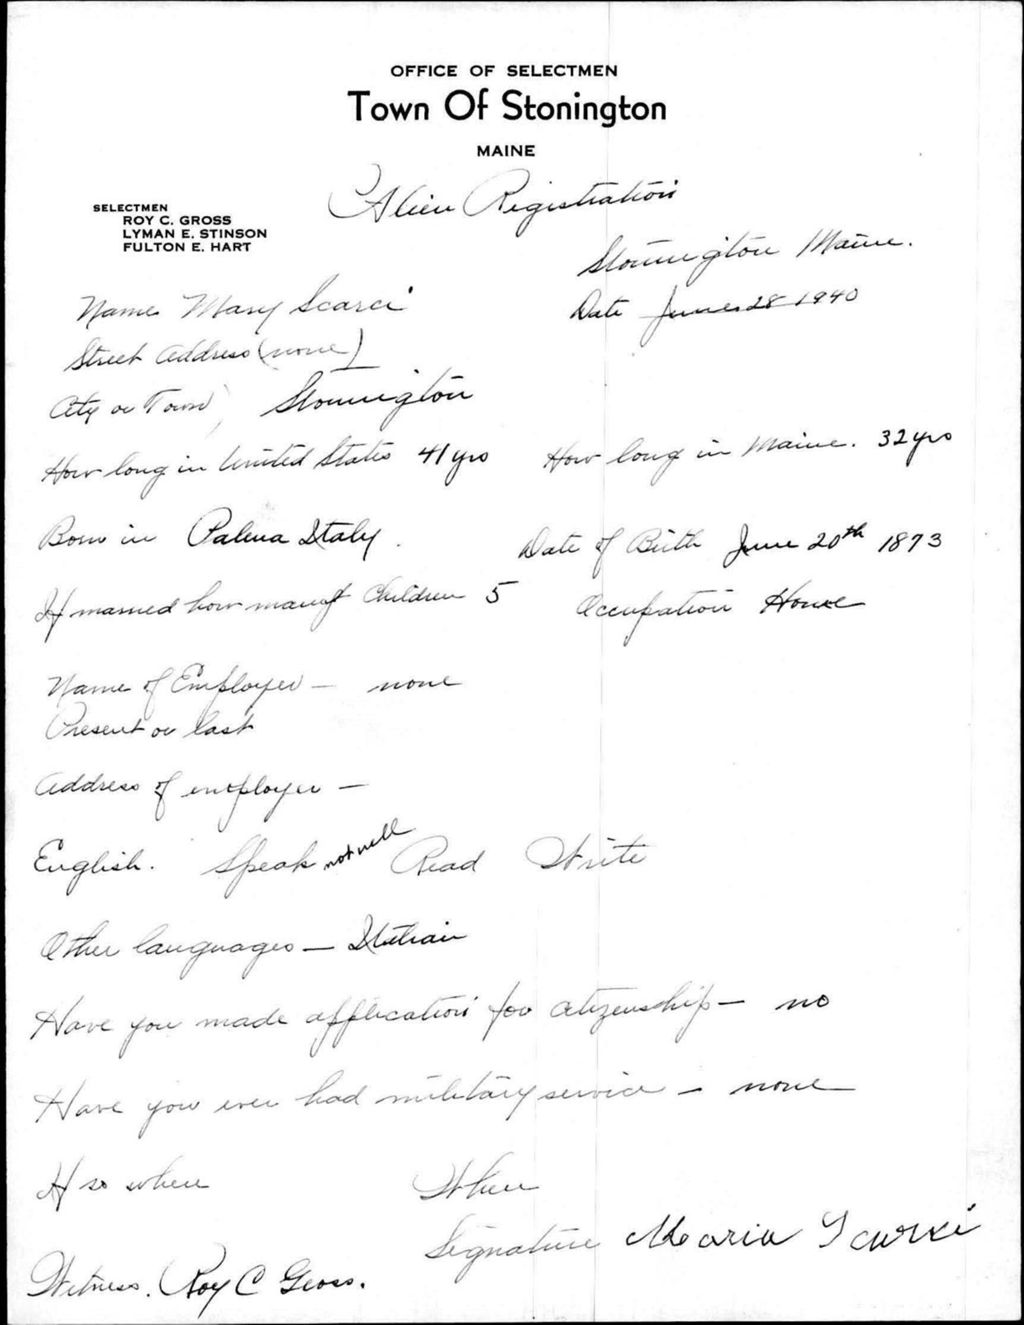 OFFICE OF SELECTMEN
Town Of Stonington
MAINE
SELECTMEN
ROY C. GROSS
LYMAN E. STINSON
FULTON E. HART
Alien Registration
Stonington Maine.
Name Mary Scarci
Date June 28 1940
Street Address (none)
City or Town Stonington
How long in United States 41 yrs How long in Maine. 32 yrs
Born in Palena Italy. Date of Birth June 20th 1873
If married how many Children 5 Occupation House
Name of Employer — none
Present or last
Address of employer —
English. Speak not well Read Write
Other languages — Italian
Have you made application for citizenship — no
Have you ever had military service — none
If so where When
Signature Maria
Witness. Roy C Gross.